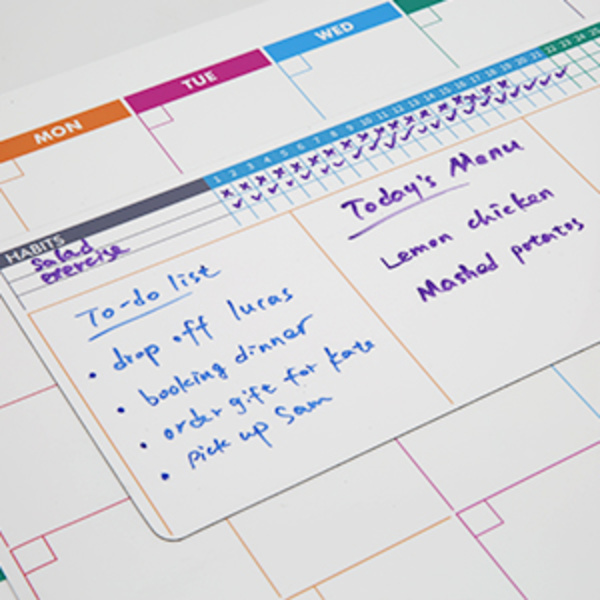 MON TUE WED
1 2 3 4 5 6 7 8 9 10 11 12 13 14 15 16 17 18 19 20 21 22 23 24 25
HABITS
Salad
exercise
To-do list
• drop off lucas
• booking dinner
• order gift for kate
• pick up Sam
Today's Menu
Lemon chicken
Mashed potatos